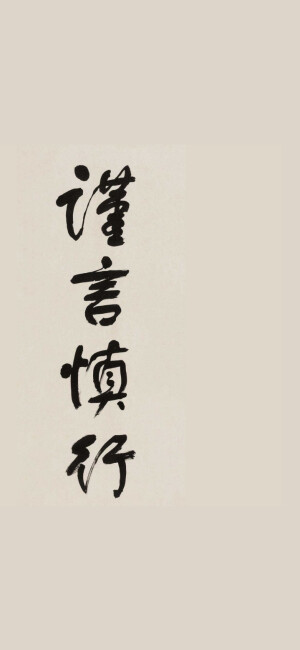 谨言慎行